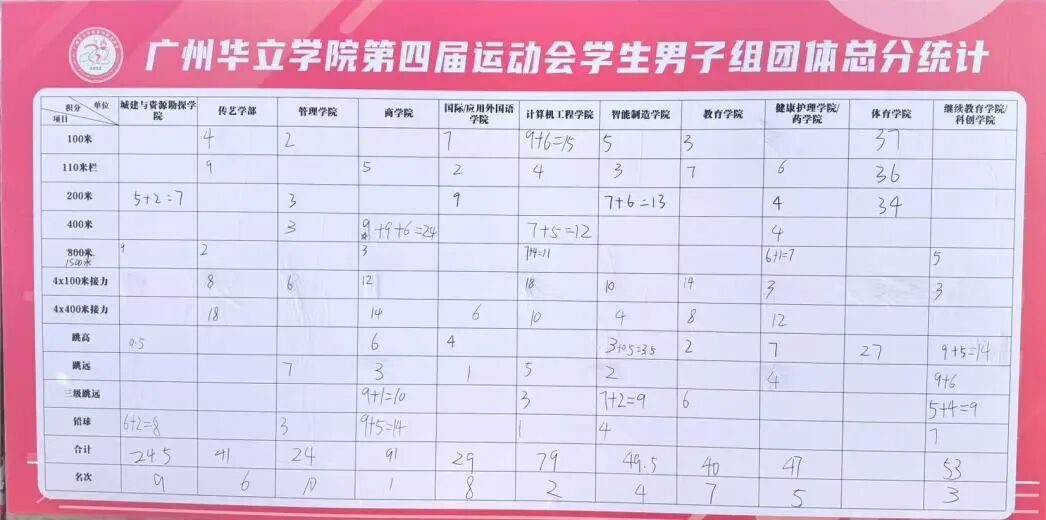 广州华立学院第四届运动会学生男子组团体总分统计
积分 单位 项目 城建与资源勘探学院 传艺学部 管理学院 商学院 国际/应用外国语学院 计算机工程学院 智能制造学院 教育学院 健康护理学院/药学院 体育学院 继续教育学院/科创学院
100米 4 2 7 9+6=15 5 3 37
110米栏 9 5 2 4 3 7 6 36
200米 5+2=7 3 9 7+6=13 4 34
400米 3 9+9+6=24 7+5=12 4
800米 1500米 9 2 3 7+4=11 6+1=7 5
4x100米接力 8 6 12 18 10 14 3 3
4x400米接力 18 14 6 10 4 8 12
跳高 0.5 6 4 3+0.5=3.5 2 7 27 9+5=14
跳远 7 3 1 5 2 4 9+6
三级跳远 9+1=10 3 7+2=9 6 5+4=9
铅球 6+2=8 3 9+5=14 1 4 7
合计 24.5 41 24 91 29 79 49.5 40 47 53
名次 9 6 10 1 8 2 4 7 5 3